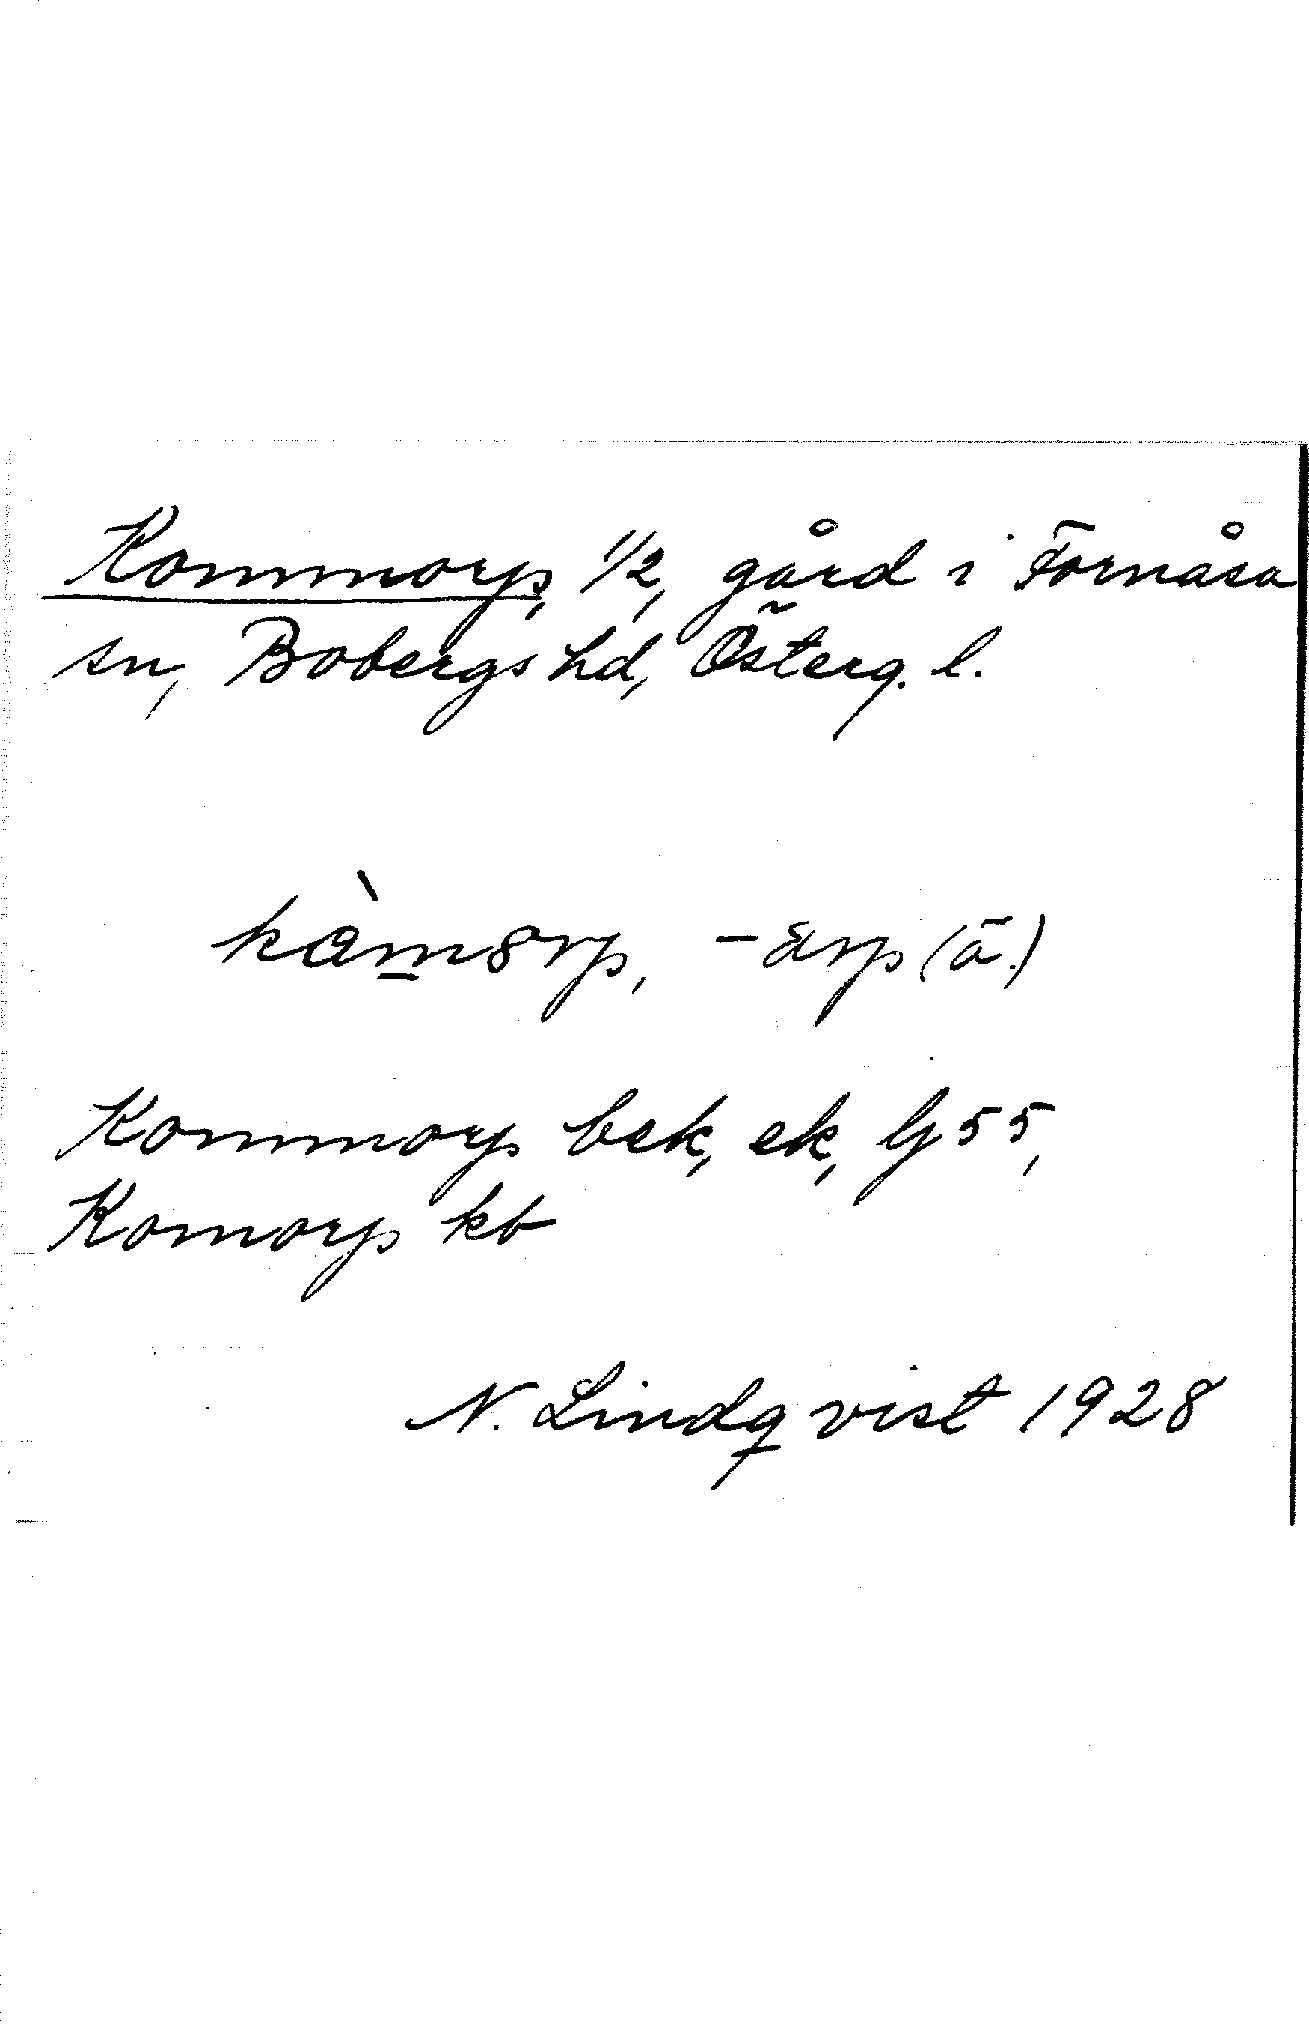 Kommorp, 1/2, gård i Fornåsa
sn, Bobergs hd, Österg. l.
-årp (ä.)
Kommorp bek, ek, Gj 55,
Komorp kb
N. Lindqvist 1928